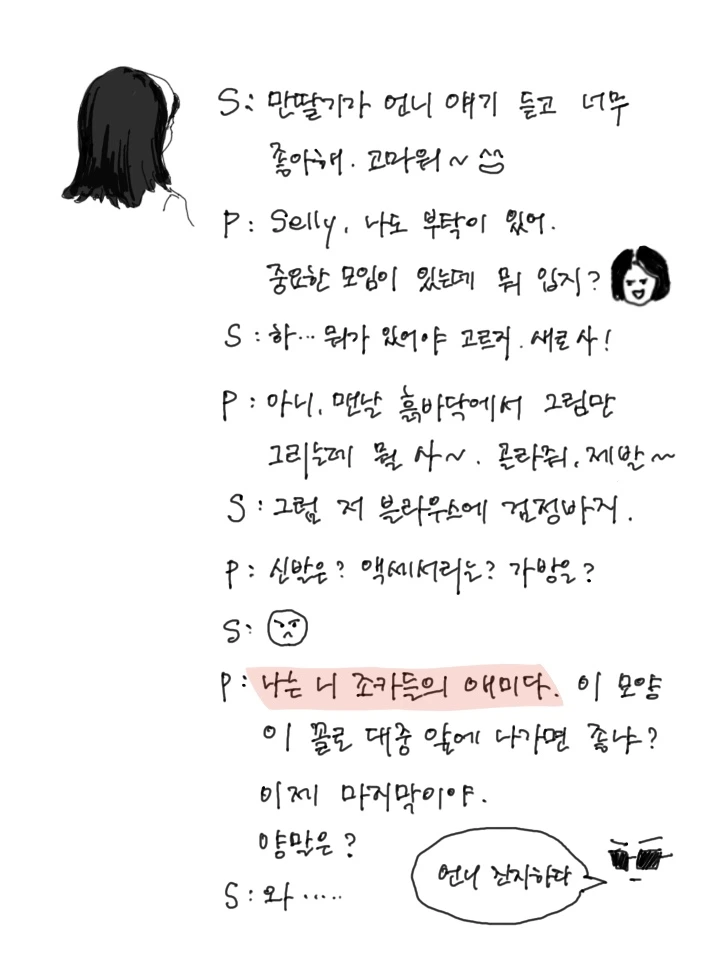 S: 만딸기가 언니 얘기 듣고 너무
좋아해. 고마워~
P: Selly, 나도 부탁이 있어.
중요한 모임이 있는데 뭐 입지?
S: 하… 뭐가 있어야 고르지. 새로 사!
P: 아니, 맨날 흙바닥에서 그림만
그리는데 뭘 사~. 골라줘, 제발~
S: 그럼 저 블라우스에 검정바지.
P: 신발은? 액세서리는? 가방은?
S:
P: 나는 니 조카들의 애미다. 이 모양
이 꼴로 대중 앞에 나가면 좋냐?
이제 마지막이야.
양말은?
언니 잔자하다
S: 와 ‥‥‥